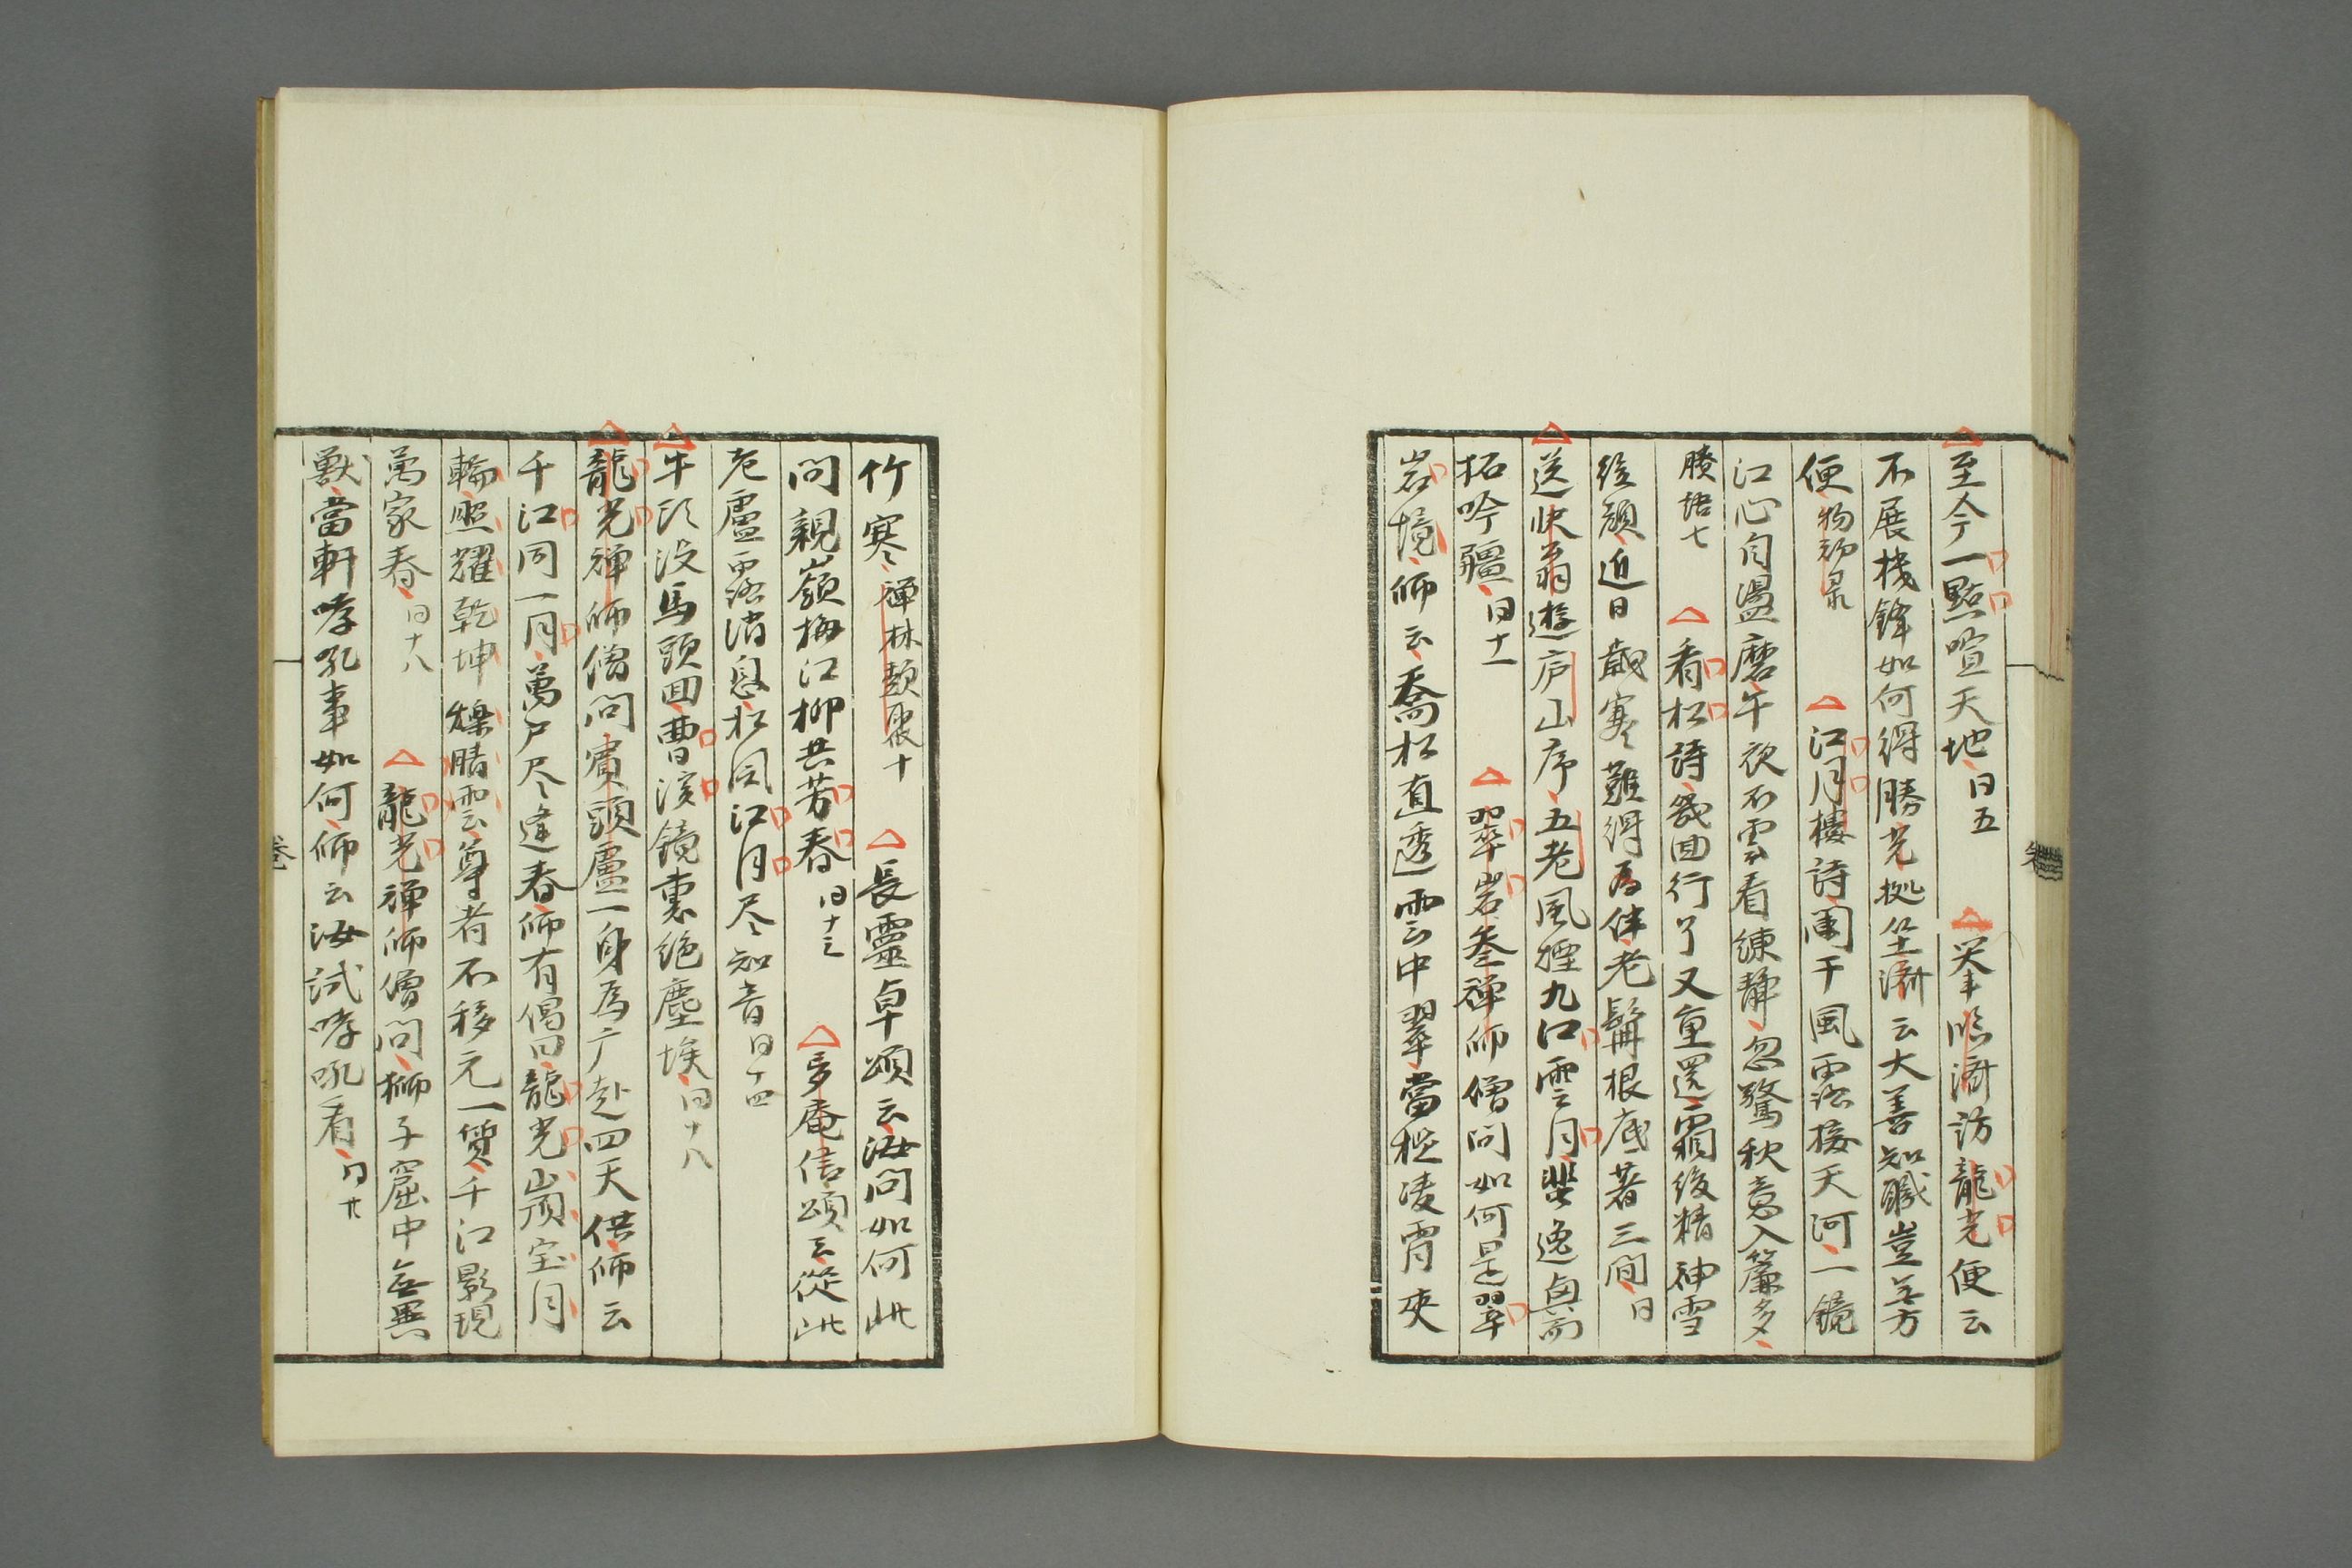 至今一點喧天地曰五　△举臨濟訪龍光便云
不展機鋒如何得勝光拠坐濟云大善知識豈無方
便物初录　△江月樓詩闌干風露接天河一鏡
江心自盪磨午夜不雲看練靜忽驚秋意入簾多
賸語七　△看松詩幾回行了又重還霜後精神雪
後顏近日歲寒難得為伴老髯根底著三間曰
△送快翁遊庐山序五老風煙九江雲月興逸與
柘吟疆曰十一　△翠岩叄禅師僧問如何是翠
岩境師云喬松直透雲中翠當檻凌霄夾
竹寒禅林類聚十　△長靈卓頌云汝問如何此
問親嶺梅江柳共芳春曰十三　△夛庵信頌云從此
老盧露消息松同江月尽知音曰十四
△牛頭没馬頭回曹溪鏡裏絶塵埃曰十八
△龍光禅師僧問賓頭盧一身為广赴四天供師云
千江同一月萬戸尽逢春師有偈曰龍光山頂宝月
輪照耀乾坤爍暗雲尊者不移元一質千江影現
萬家春曰十八　△龍光禅師僧問獅子窟中無異
獸當軒哮吼事如何師云汝試哮吼看曰廿